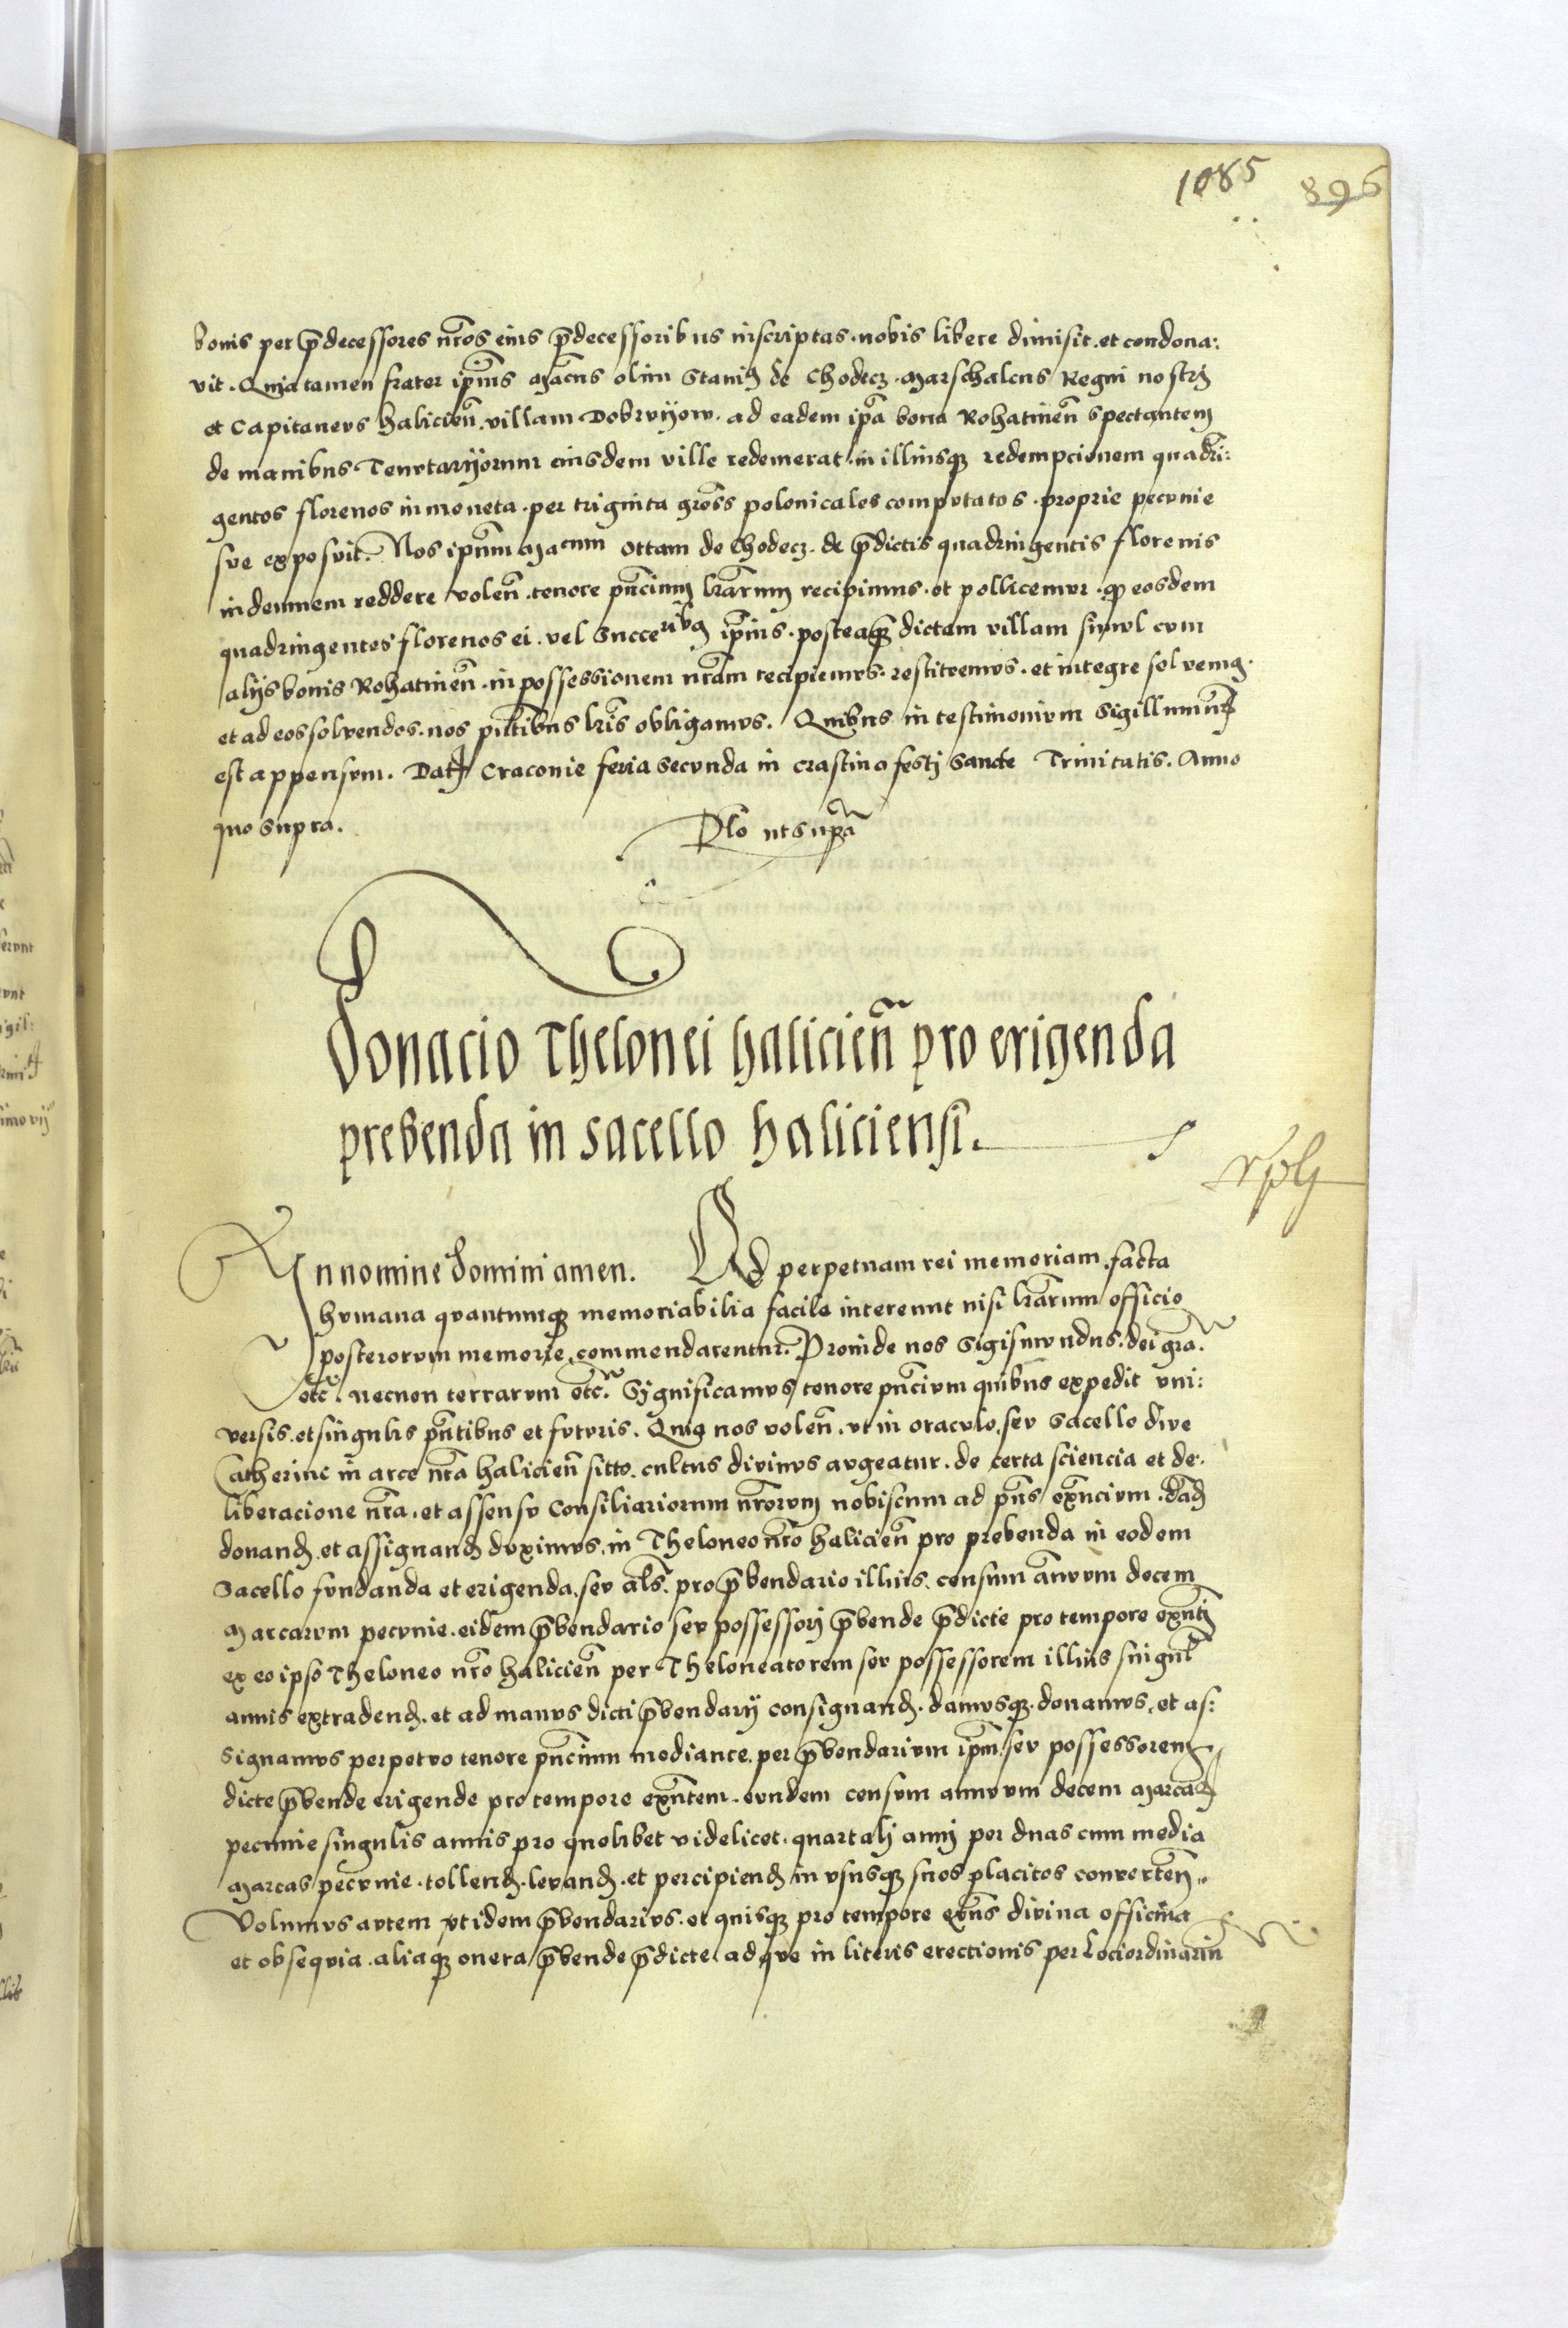 1085 896
bonis per p̄decessores nr̄os eius p̄decessoribus inscriptas. nobis libere dimisit. et condona:
vit. Quia tamen frater ip̄ius Mācus olim Stanis̄ de Chodecz. Marschalcus Regni nostrj
et Capitaneus halicien̄. villam Dobrvyow. ad eadem ip̄a bona Rohatinen̄ spectantem
de manibus Tenutarijorum eiusdem ville redemerat. in illiusq̄ redempcionem quadri:
gentos florenos in moneta. per triginta gross̄ polonicales computatos. proprie pecunie
sue exposuit. Nos ip̄um Mācum Ottam de Chodecz. de p̄dictis quadringentis florenis
indemnem reddere volen̄. tenore pn̄cium lr̄arum recipimus. et pollicemur. q̄ eosdem
quadringentos florenos ei. vel Succeribꝫ ip̄ius. posteaq̄ dictam villam simul cum
alijs bonis Rohatinen̄. in possessionem nr̄am recipiemus. restituemus. et integre soluemꝯ.
et ad eos soluendos. nos pn̄tibus lr̄is obligamus. Quibus in testimonium Sigillum nr̄m
est appensum. Dat̄ Craconie feria secunda in crastino festj Sancte Trinitatis. Anno
quo supra. Rl̄o ut sup̄a
Donacio Thelonei halicien̄ pro erigenda
prebenda in sacello haliciensi.
In nomine domini amen. Ad perpetuam rei memoriam. facta
humana quantumq̄ memoriabilia facile intereunt nisi lr̄arum officio
posterorum memorie commendarentur. Proinde nos Sigismundus. dei gr̄a.
etc̄. necnon terrarum etc̄. Significamus tenore pn̄cium quibus expedit vni:
versis. et singulis pn̄tibus et futuris. Quia nos volen̄. ut in oraculo. seu Sacello dive
Catherine in arce nr̄a halicien̄ sitto. cultus divinus augeatur. de certa sciencia et de:
liberacione nr̄a. et assensu Consiliariorum nr̄orum nobiscum ad pn̄s exn̄cium. dand̄
donand̄. et assignand̄ duximus. in Theloneo nr̄o halicien̄ pro prebenda in eodem
Sacello fundanda et erigenda. seu als̄. pro p̄bendario illius. censum an̄uum decem
Marcarum pecunie. eidem p̄bendario seu possessorj p̄bende p̄dicte pro tempore exn̄tj
ex eo ipso Theloneo nr̄o halicien̄ per Theloneatorem seu possessorem illius singul̄
annis extradend̄. et ad manus dicti p̄bendarij consignand̄. damusq̄. donamus. et as:
signamus perpetuo tenore pn̄cium mediante. per p̄bendarium ip̄m. seu possessorem
dicte p̄bende erigende pro tempore exn̄tem. eundem censum annuum decem Marcar̄
pecunie singulis annis pro quolibet videlicet. quartalj annj per duas cum media
Marcas pecunie. tollend̄. levand̄. et percipiend̄ in ususq̄ suos placitos converten̄.
Volumus autem ut idem p̄bendarius. et quisq̄ pro tempore exn̄s divina officina
et obsequia. aliaq̄ onera p̄bende p̄dicte. ad que in literis erectionis per Lociordinariū